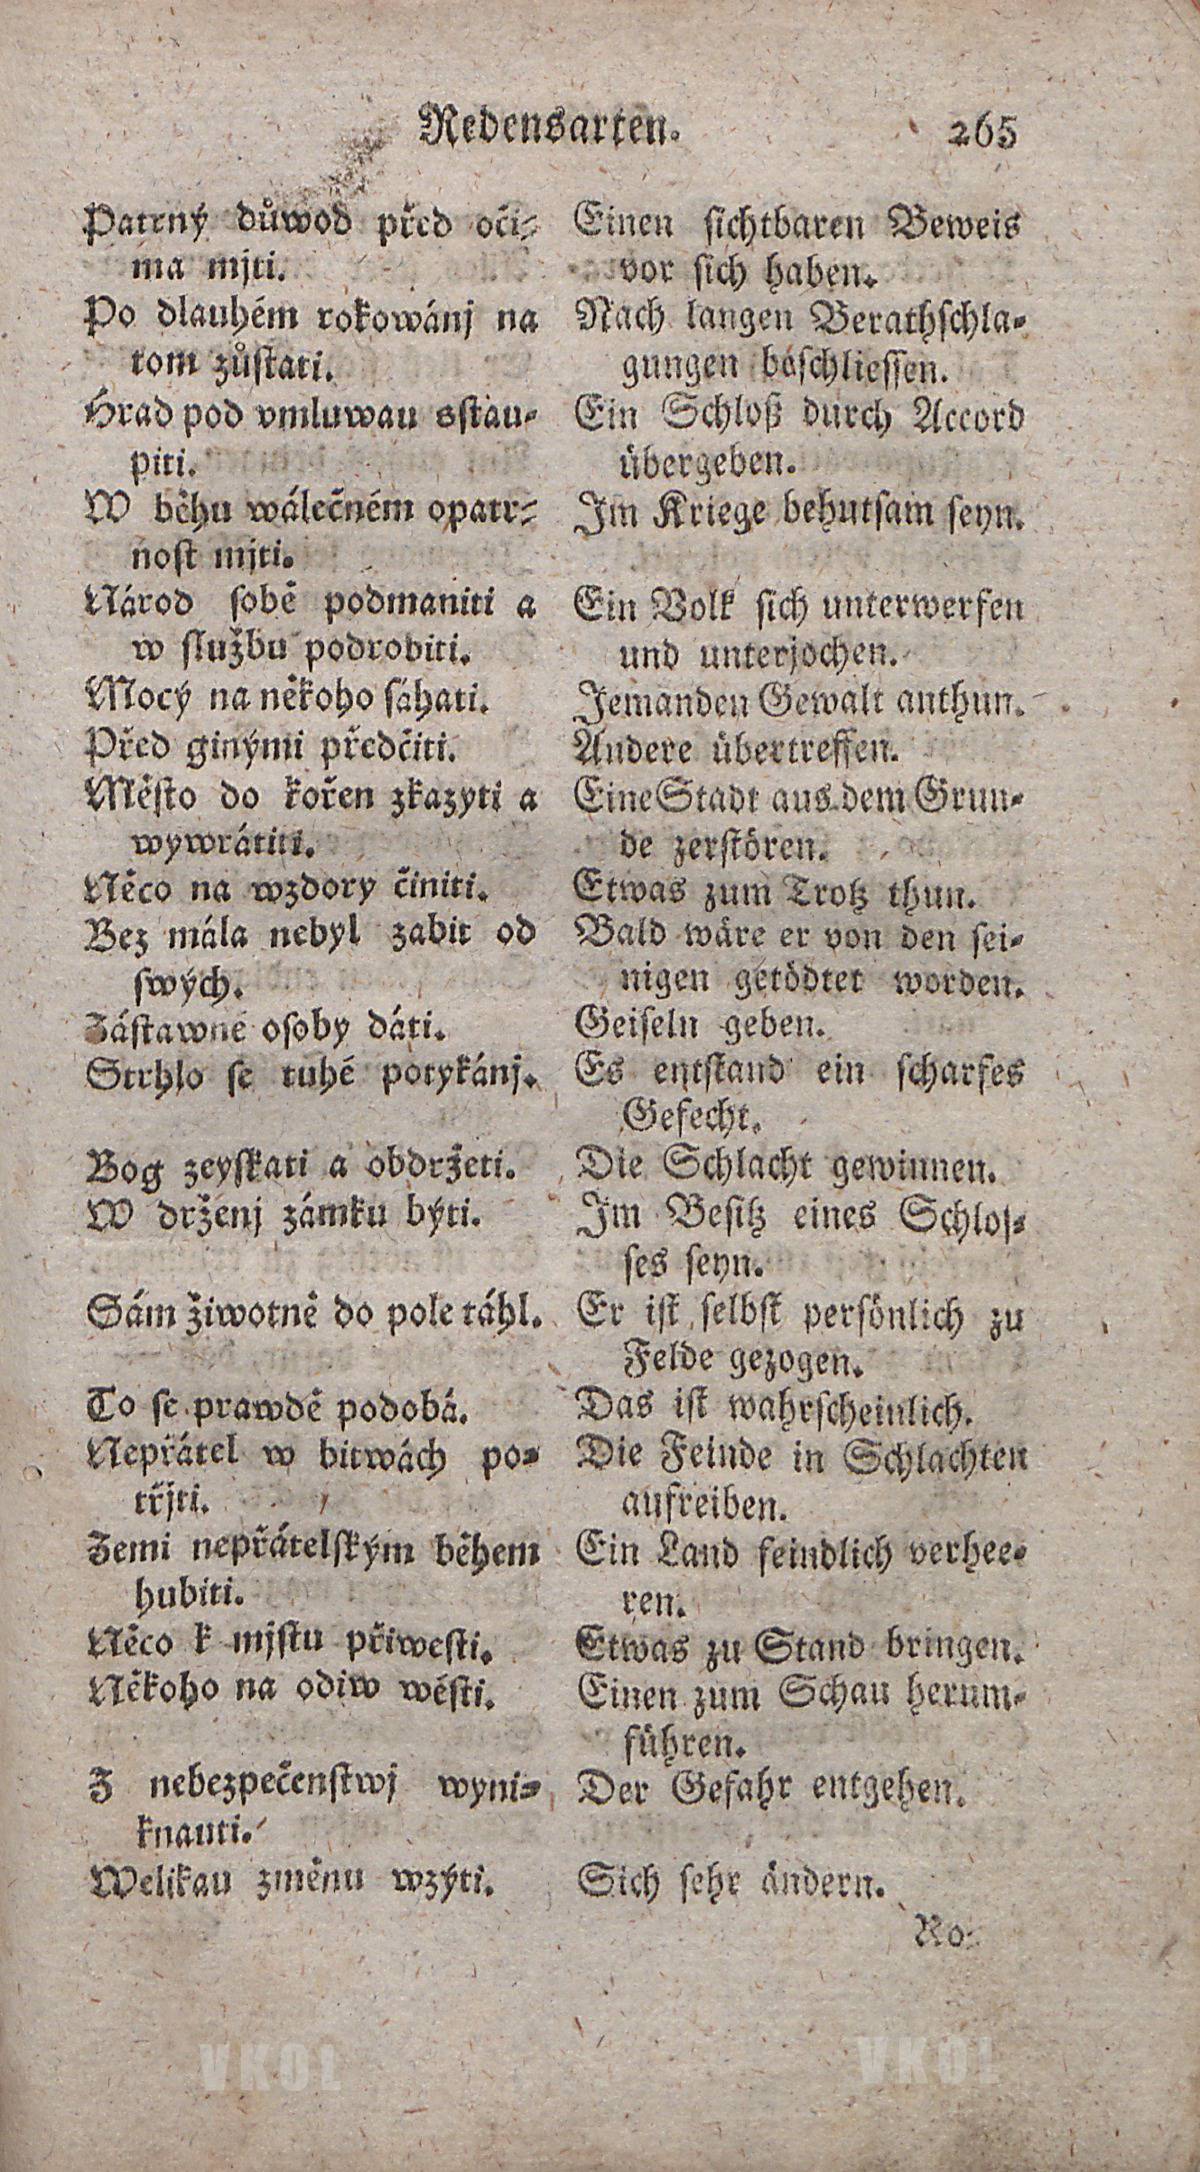 Redensarten. 265
Patrný důwod před oči-
ma mjti.
Po dlauhém rokowánj na
tom zůstati.
Hrad pod vmluwau sstau-
piti.
W běhu wálečném opatr-
nost mjti.
Národ sobě podmaniti a
w službu podrobiti.
Mocý na někoho sáhati.
Před ginými předčiti.
Město do kořen zkazyti a
wywrátiti.
Něco na wzdory činiti.
Bez mála nebyl zabit od
swých.
Zástawné osoby dáti.
Strhlo se tuhé potykánj.
Bog zeyskati a obdržeti.
W drženj zámku býti.
Sám žiwotně do pole táhl.
To se prawdě podobá.
Nepřátel w bitwách po-
třjti.
Zemi nepřátelským během
hubiti.
Něco k mjstu přiwesti.
Někoho na odiw wésti.
Z nebezpečenstwj wyni-
knauti.
Welikau změnu wzýti.
Einen sichtbaren Beweis
vor sich haben.
Nach langen Berathschla-
gungen beschliessen.
Ein Schloß durch Accord
übergeben.
Im Kriege behutsam seyn.
Ein Volk sich unterwerfen
und unterjochen.
Jemanden Gewalt anthun.
Andere übertreffen.
Eine Stadt aus dem Grun-
de zerstören.
Etwas zum Trotz thun.
Bald wäre er von den sei-
nigen getödtet worden.
Geiseln geben.
Es entstand ein scharfes
Gefecht.
Die Schlacht gewinnen.
Im Besitz eines Schlos-
ses seyn.
Er ist selbst persönlich zu
Felde gezogen.
Das ist wahrscheinlich.
Die Feinde in Schlachten
aufreiben.
Ein Land feindlich verhee-
ren.
Etwas zu Stand bringen.
Einen zum Schau herum-
führen.
Der Gefahr entgehen.
Sich sehr ändern.
Ro-
VKOL VKOL